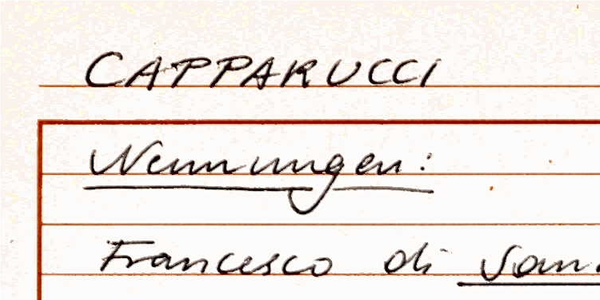 CAPPARUCCI
Nennungen:
Francesco di